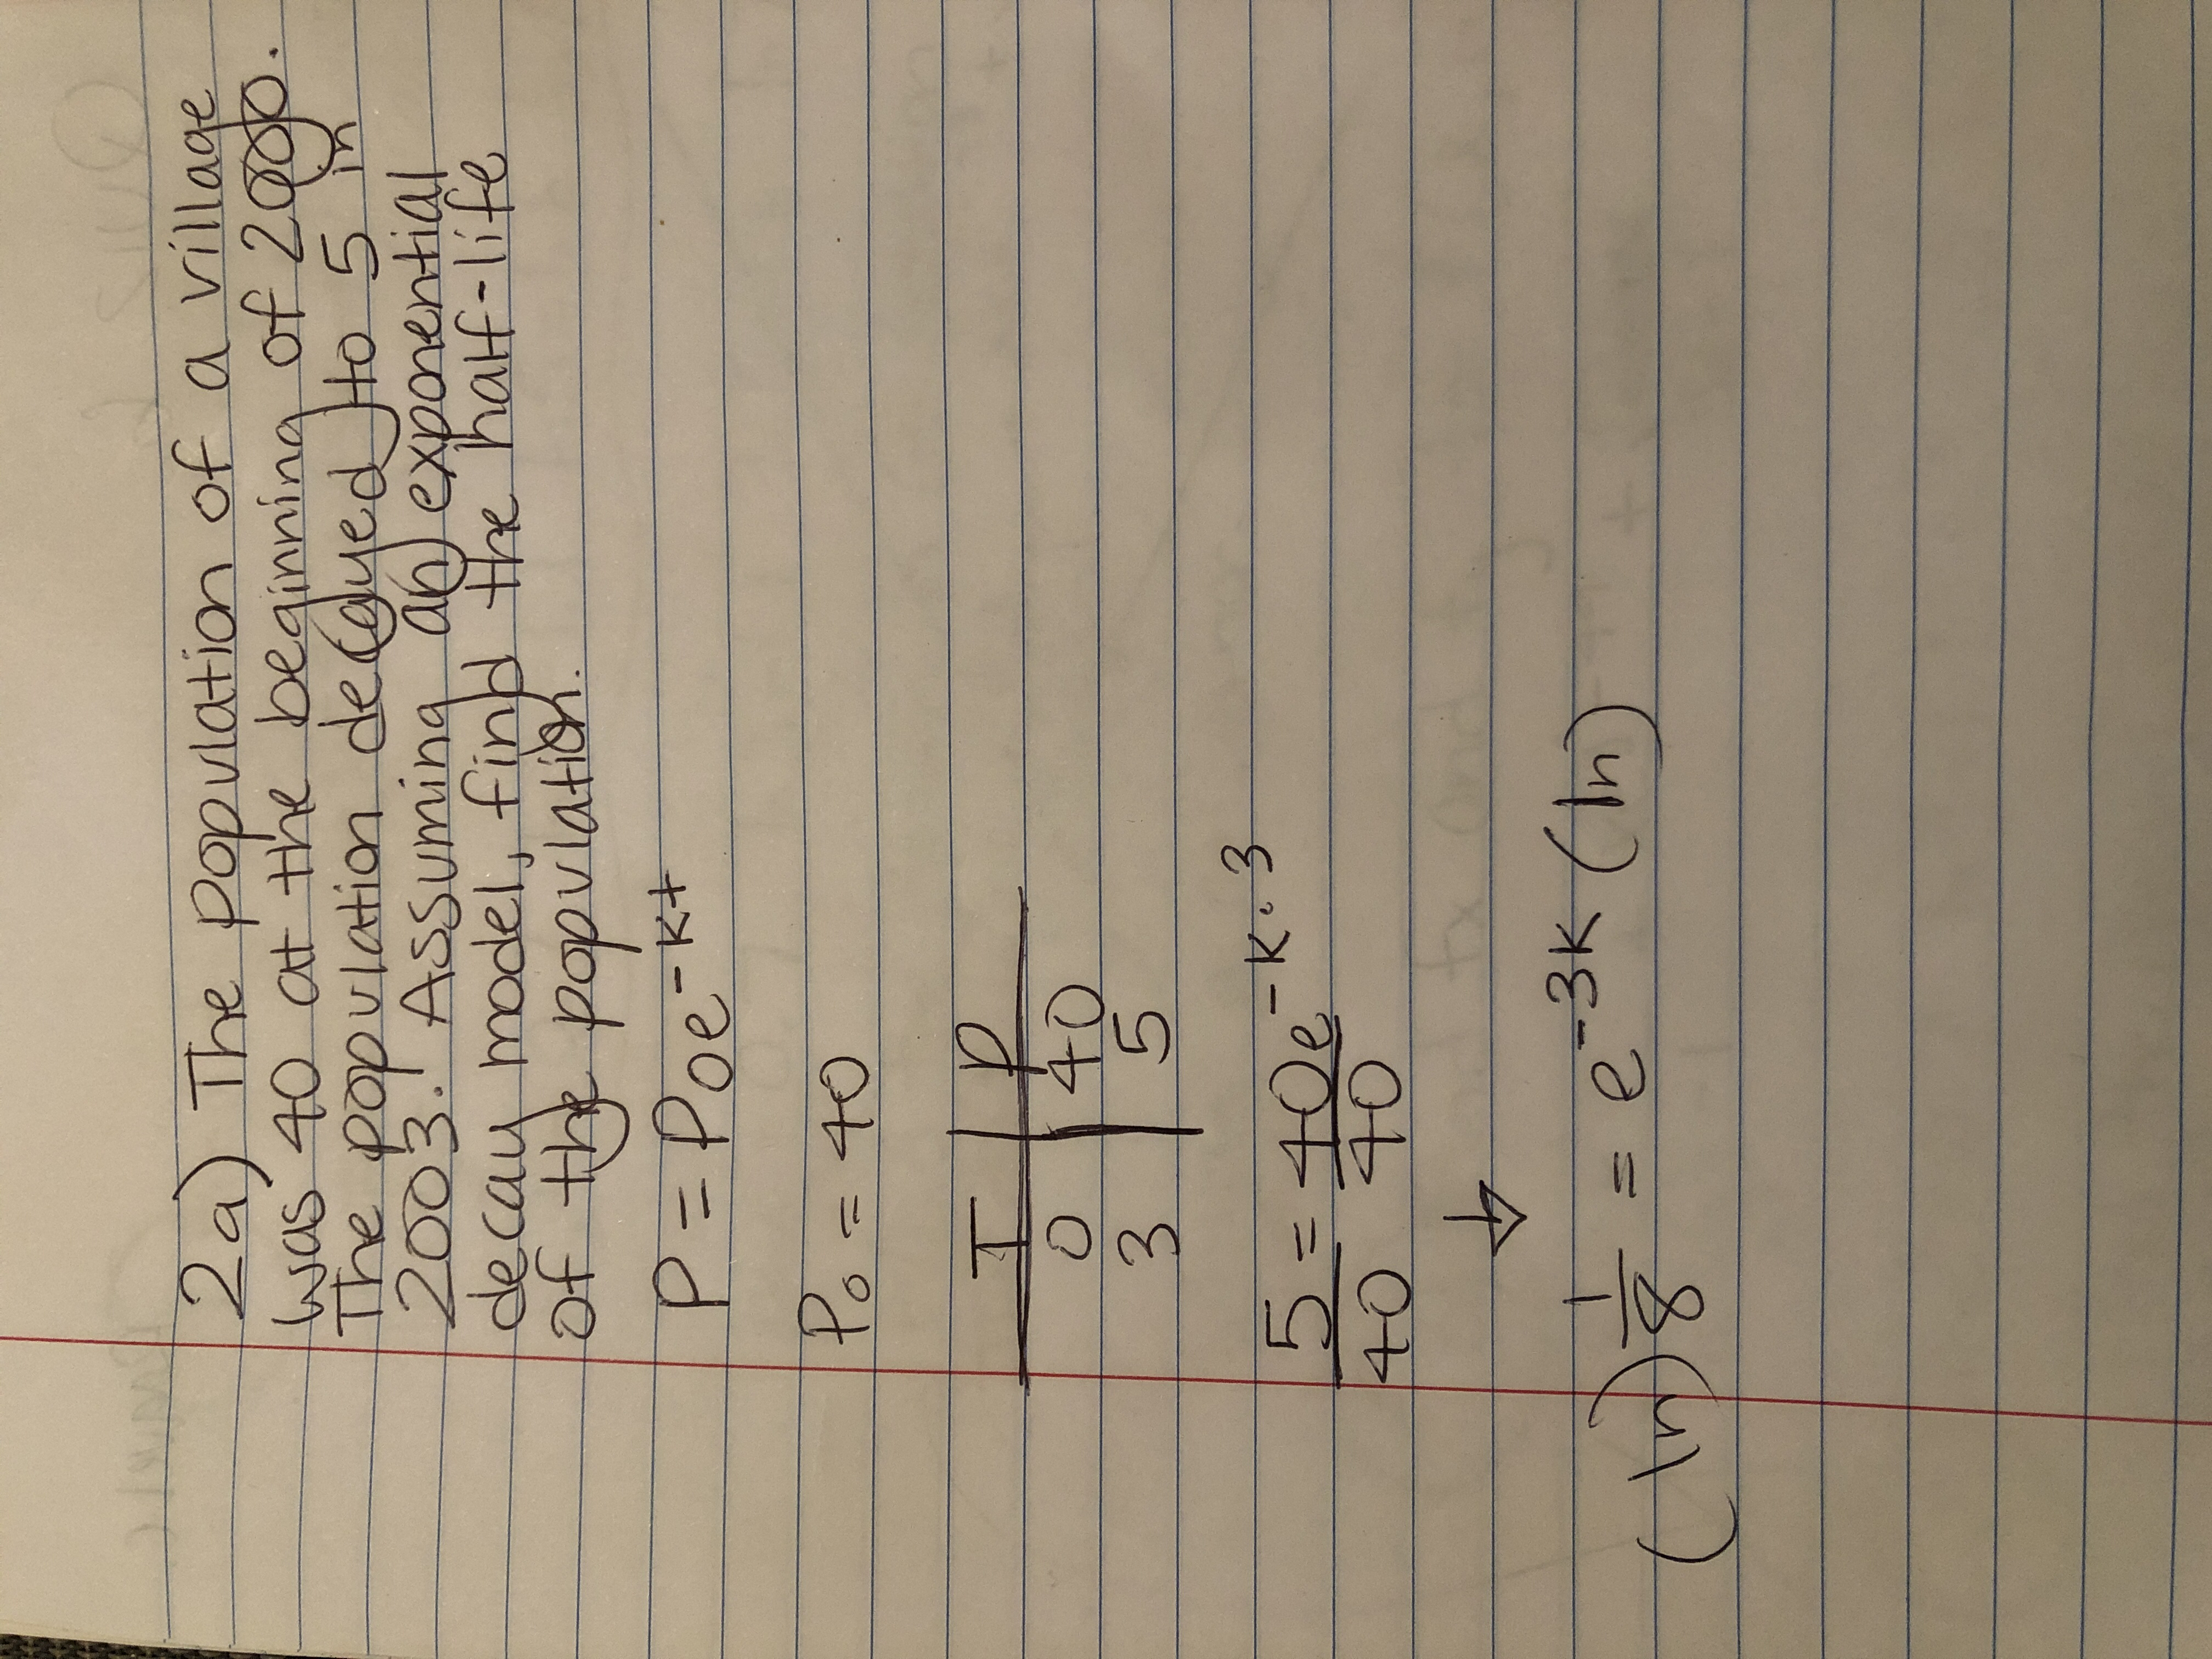 2a) The population of a village
was 40 at the beginning of 2000.
The population decayed to 5 in
2003. Assuming an exponential
decay model, find the half-life
of the population.
P = P0e^-kt
P0 = 40
T | P
0 | 40
3 | 5
5 = 40e^-k·3
40 40
↓
(ln) 1/8 = e^-3k (ln)